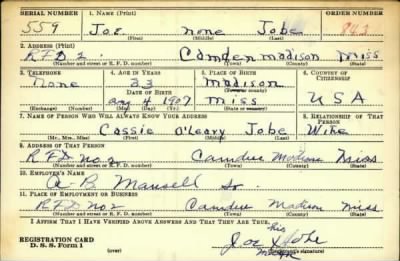 SERIAL NUMBER 1. NAME (Print) ORDER NUMBER
559 Joe none Jobe 843
(First) (Middle) (Last)
2. ADDRESS (Print)
RFD 2. Camden Madison Miss
(Number and street or R. F. D. number) (Town) (County) (State)
3. TELEPHONE 4. AGE IN YEARS 5. PLACE OF BIRTH 6. COUNTRY OF CITIZENSHIP
None 33 Madison
DATE OF BIRTH (Town or county)
Aug 4 1907 Miss USA
(Exchange) (Number) (Mo.) (Day) (Yr.) (State or country)
7. NAME OF PERSON WHO WILL ALWAYS KNOW YOUR ADDRESS 8. RELATIONSHIP OF THAT PERSON
Cassie O'Leary Jobe Wife
(Mr., Mrs., Miss) (First) (Middle) (Last)
9. ADDRESS OF THAT PERSON
RFD No 2 Camden Madison Miss
(Number and street or R. F. D. number) (Town) (County) (State)
10. EMPLOYER'S NAME
A. B. Mansell Sr.
11. PLACE OF EMPLOYMENT OR BUSINESS
RFD No 2 Camden Madison Miss
(Number and street or R. F. D. number) (Town) (County) (State)
I AFFIRM THAT I HAVE VERIFIED ABOVE ANSWERS AND THAT THEY ARE TRUE.
his
REGISTRATION CARD Joe X Jobe
D. S. S. Form 1 (over) mark (Registrant's signature)